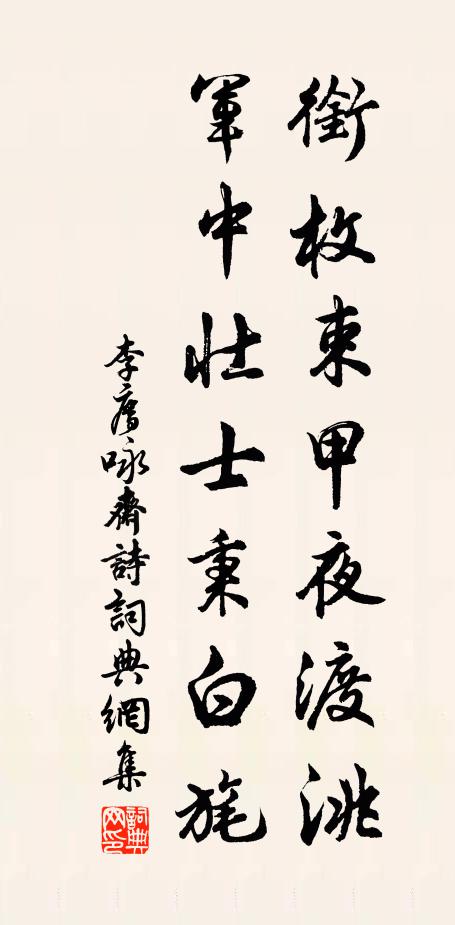 銜枚束甲夜渡洮
軍中壯士秉白旄
李咏齋詩詞典網集
詞典網印